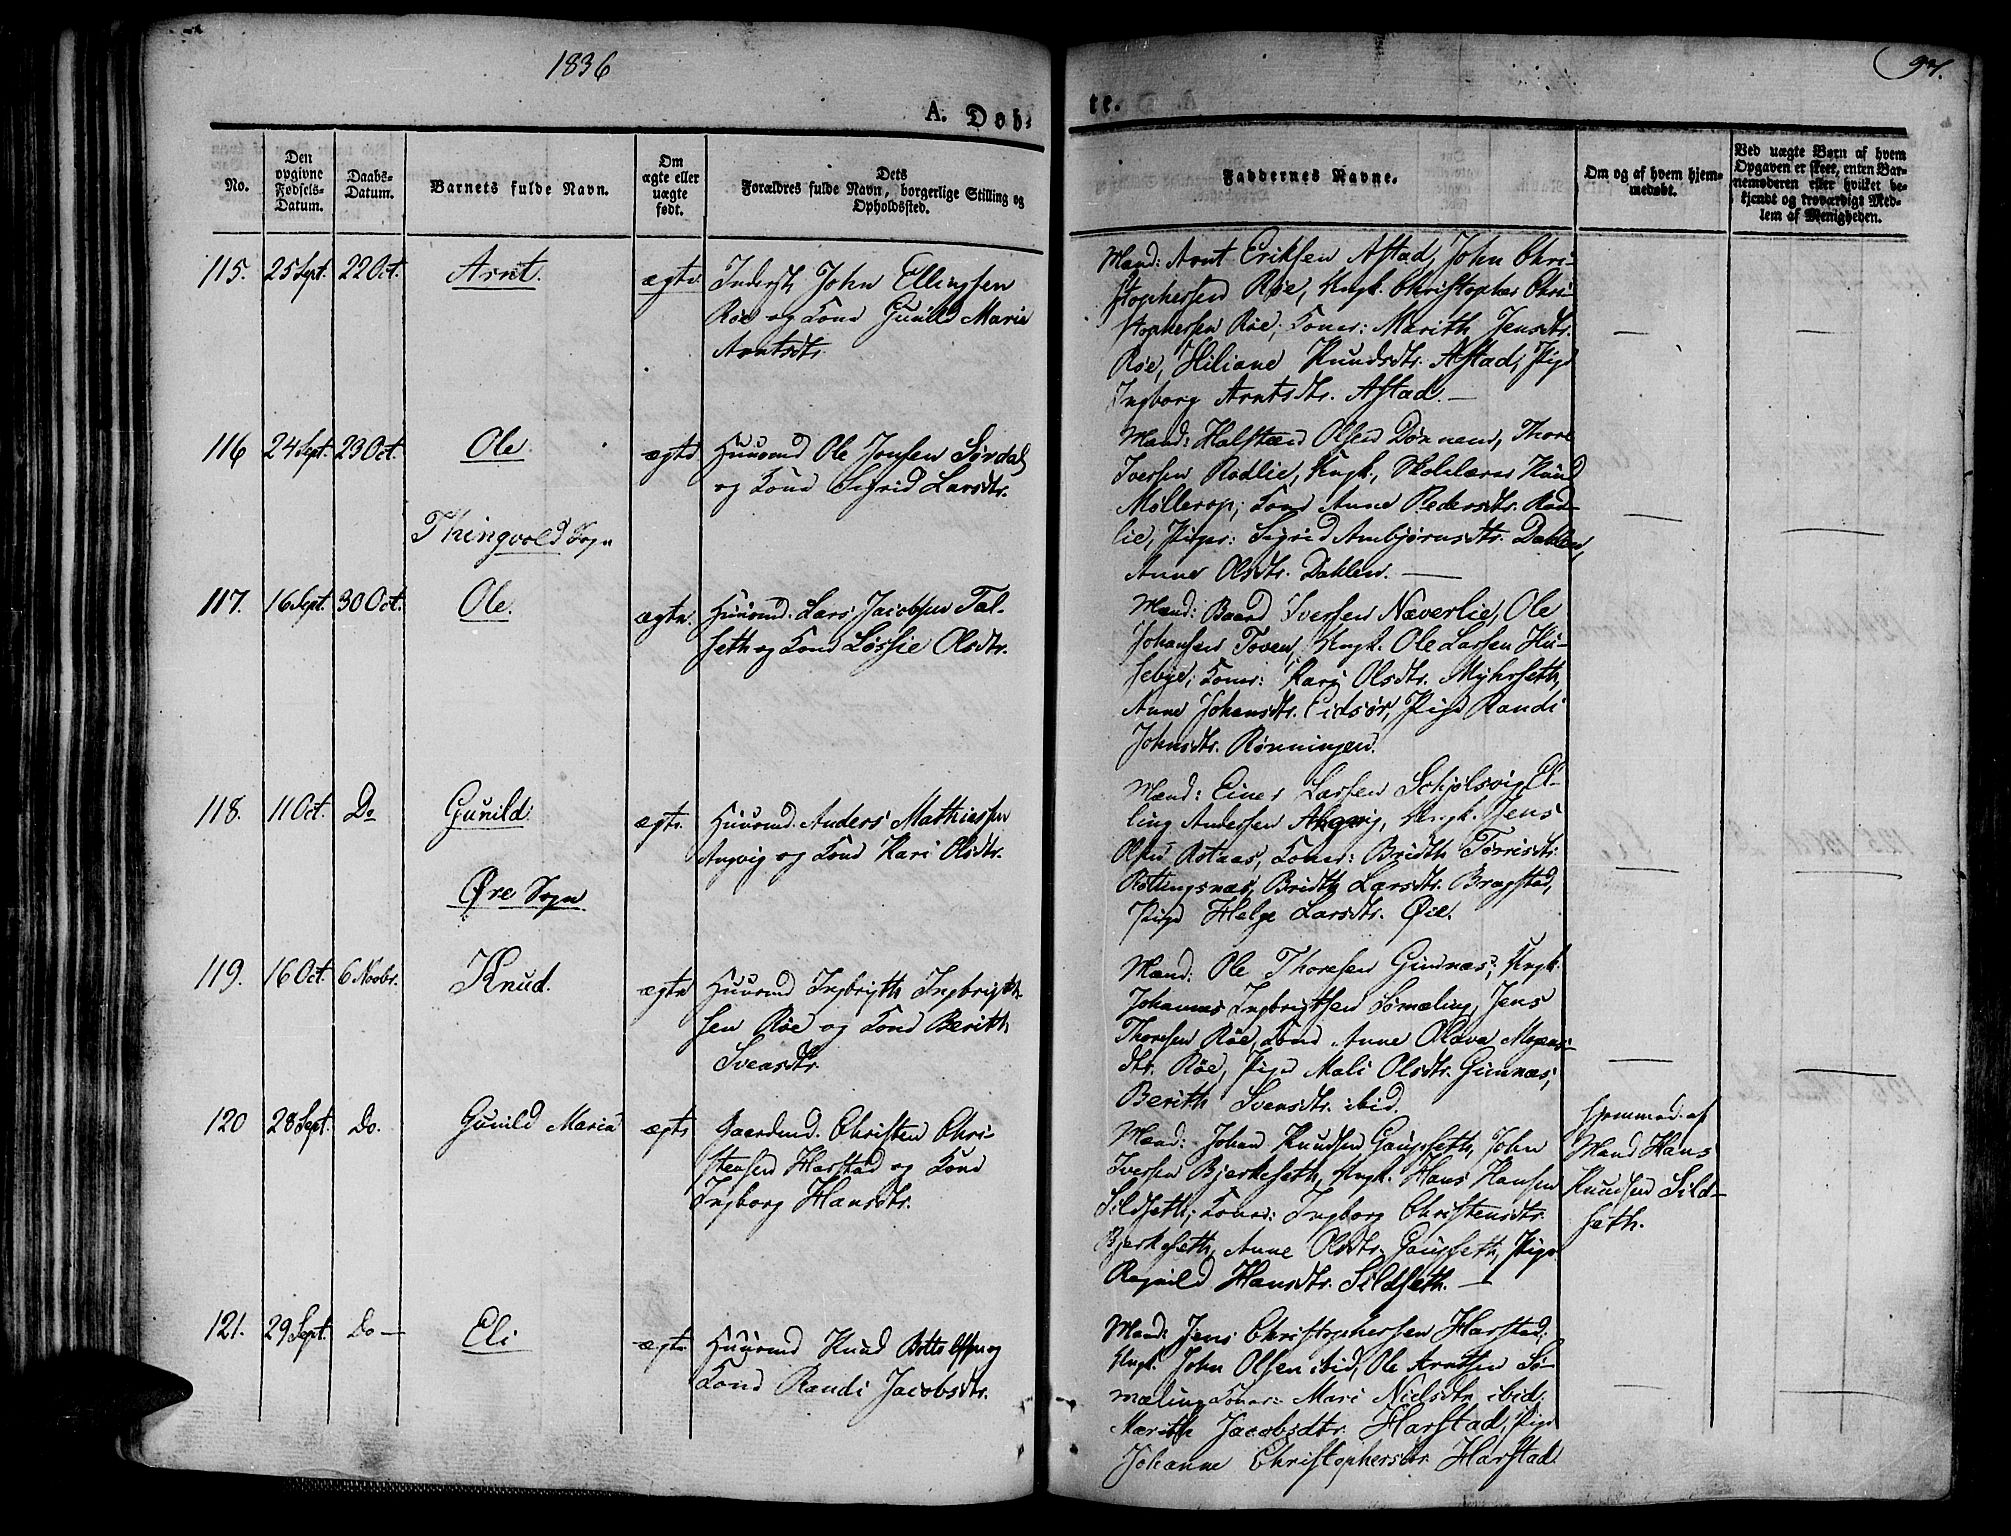 1836
97.
A. Døb-
te.
No.
Den
opgivne
Fødsels-
Datum.
Daabs-
Datum.
Barnets fulde Navn.
Om
ægte eller
uægte
født.
Dets
Forældres fulde Navn, borgerlige Stilling og
Opholdssted.
Faddernes Navne.
Om og af hvem hjem-
medøbt.
Ved uægte Børn af hvem
Opgaven er skeet, enten Bar-
nemoderen eller hvilket be-
kjendt og troværdigt Med-
lem af Menigheden.
115. 25 Sept. 22 Oct. Arnt. ægte
Inderst John Ellingsen
Røe og Kone Gunild Marie
Arntsdtr.
Mænd: Arnt Eriksen Astad, John Chri-
stophersen Røe, Ungk. Christopher Chri-
stophersen Røe; Koner: Marith Jensdtr.
Røe, Hiliane Knudsdtr. Astad, Pige
Ingborg Arntsdtr. Astad. —
116 24 Sept. 23 Oct. Ole. ægte
Huusmd Ole Jonsen Sørdal
og Kone Sigrid Larsdtr.
Mænd: Halsten Olsen Dønnem, Thore
Iversen Rødlie, Ungk. Skolelærer Knud
Møllerop; Kone Anne Pedersdtr. Rød-
lie, Piger: Sigrid Ambjørnsdtr. Dahlen,
Anne Olsdtr. Dahlen. —
Thingvold Sogn
117. 16 Sept. 30 Oct. Ole. ægte.
Huusmd. Lars Jacobsen Tal-
seth og Kone Løssie Olsdtr.
Mænd: Baard Iversen Næverlie, Ole
Johansen Toven, Ungk. Ole Larsen Hu-
sebye; Koner: Kari Olsdtr. Myhrseth,
Anne Johansdtr. Eidsør, Pige Randi
Johnsdtr. Rønningen.
118. 11 Oct. Do Gunild. ægte.
Huusmd. Anders Mathiessen
Angvig og Kone Kari Olsdtr.
Mænd: Einer Larsen Schjølsvig, El-
ling Andersen Angvig, Ungk. Jens
Olsen Astaas, Koner: Bridth Torrisdtr.
Røttingsnæs, Bridth Larsdtr. Bragstad,
Pige Helge Larsdtr. Øie.
Øre Sogn
119. 16 Oct. 6 Novbr. Knud. ægte
Huusmd Ingbrigth Ingbrigth-
sen Røe og Kone Berith
Svensdtr.
Mænd: Ole Thoresen Gimnæs; Ungk.
Johannes Ingbrigtsen Sømæling, Jens
Thoresen Røe, Kone Anne Olava Mogens-
dtr. Røe, Pige Mali Olsdtr. Gimnæs,
Berith Svensdtr. ibid.
120 28 Sept. Do. Gunild Maria ægte
Gaardmd. Christen Chri-
stensen Harstad og Kone
Ingborg Hansdtr.
Mænd: Johan Knudsen Gaupseth, John
Iversen Bjerkeseth, Ungk. Hans Hansen
Sildseth; Koner: Ingborg Christensdtr.
Bjerkeseth, Anne Olsdtr. Gaupseth, Pige
Ragnild Hansdtr. Sildseth. —
Hjemmed. af
Mand Hans
Knudsen Sild-
seth.
121. 29 Sept. Do — Eli ægte
Huusmd Knud Bottolfsen og
Kone Randi Jacobsdtr.
Mænd: Jens Christophersen Harstad;
Ungk. John Olsen ibid, Ole Arntsen Sø-
mæling Koner: Mari Nielsdtr. ibid;
Marith Jacobsdtr. Harstad, Pige
Johanne Christophersdtr Harstad.